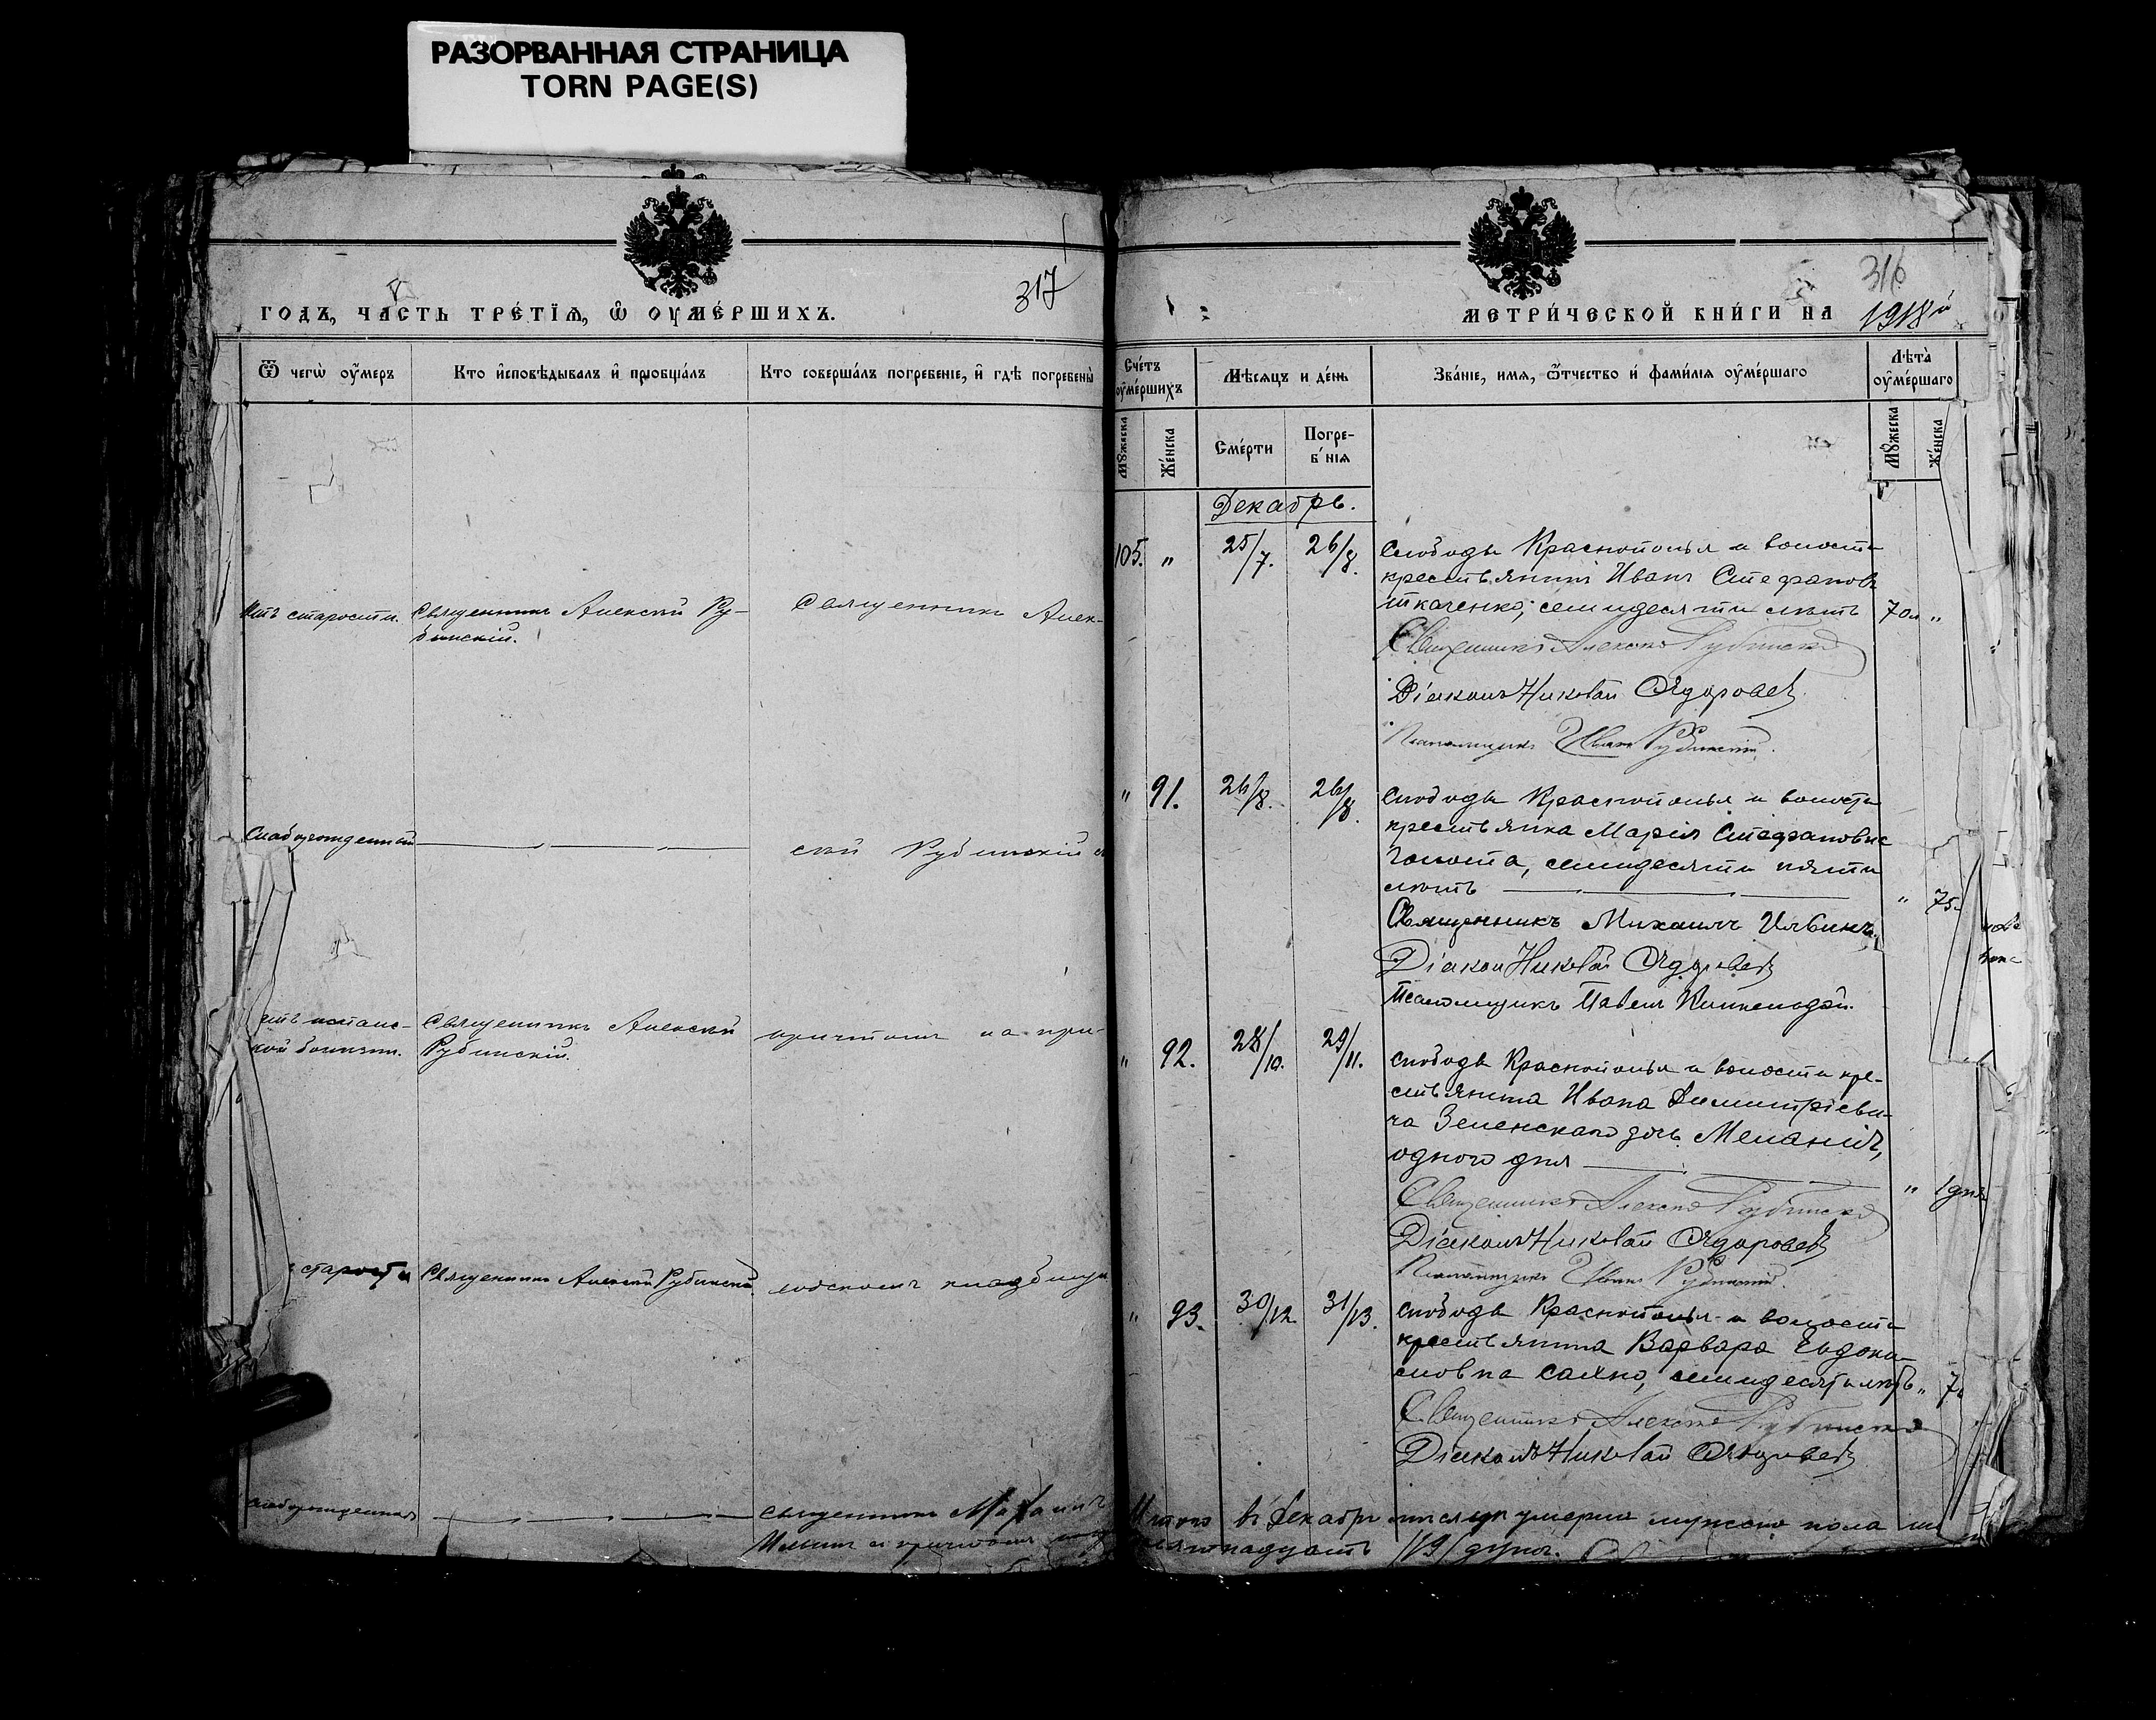 РАЗОРВАННАЯ СТРАНИЦА
TORN PAGE(S)
317
ГОДЪ, ЧАСТЬ ТРЕ́ТІѦ, Ѿ ОУМЕ́РШИХЪ.
Ѿ чегѡ̀ оу҆́меръ
Кто и҆сповѣ́дывалъ и҆ прїобща́лъ
Кто соверша́лъ погребенїе, и҆ гдѣ̀ погребены̀
Отъ старости.
Священникъ Алексѣй Ру-
бинскій.
Священникъ Алек-
Слаборожденный
сѣй Рубинскій съ
кой болѣзни.
Священникъ Алексѣй
Рубинскій.
причтомъ на при-
старости
Священникъ Алексѣй Рубинскій.
ходскомъ кладбищѣ
слаборожденная
священникъ Михаилъ
Ильинъ съ причтомъ
316
МЕТРИ́ЧЕСКОЙ КНИ́ГИ НА 1918й
Сче́тъ оу҆ме́ршихъ
Мѣ́сѧцъ и де́нь
Зва́нїе, и҆мѧ, ѻ҆́тчество и҆ фами́лїѧ оу҆ме́ршаго
Лѣта̀ оу҆ме́ршаго
Мꙋ́жеска
Же́нска
Сме́рти
Погре-
б нїѧ
Мꙋ́жеска
Же́нска
Декабрь.
105. " 25/7. 26/8. Слободы Краснополья и волости
крестьянинъ Иванъ Стефановъ
Ткаченко, семидесяти лѣтъ 70л "
Священникъ Алексѣй Рубинскій
Діаконъ Николай Ѳедоровъ
Псаломщикъ Иванъ Рубинскій.
" 91. 26/8. 26/8. Слободы Краснополья и волости
крестьянка Марія Стефановна
Голота, семидесяти пяти
лѣтъ " 75.
Священникъ Михаилъ Ильинъ
Діаконъ Николай Ѳедоровъ
Псаломщикъ Павелъ
" 92. 28/10. 29/11. Слободы Краснополья и волости кре-
стьянина Ивана Димитріеви-
ча Зеленскаго дочь Меланія,
одного дня " 1 дня
Священникъ Алексѣй Рубинскій
Діаконъ Николай Ѳедоровъ
Псаломщикъ Иванъ Рубинскій.
" 93. 30/12. 31/13. Слободы Краснополья и волости
крестьянка Варвара Евдоки-
мовна Сахно, семидесяти лѣтъ " 70
Священникъ Алексѣй Рубинскій
Діаконъ Николай Ѳедоровъ
Итого въ Декабрѣ мѣсяцѣ умерло мужско пола
/19/ душъ.